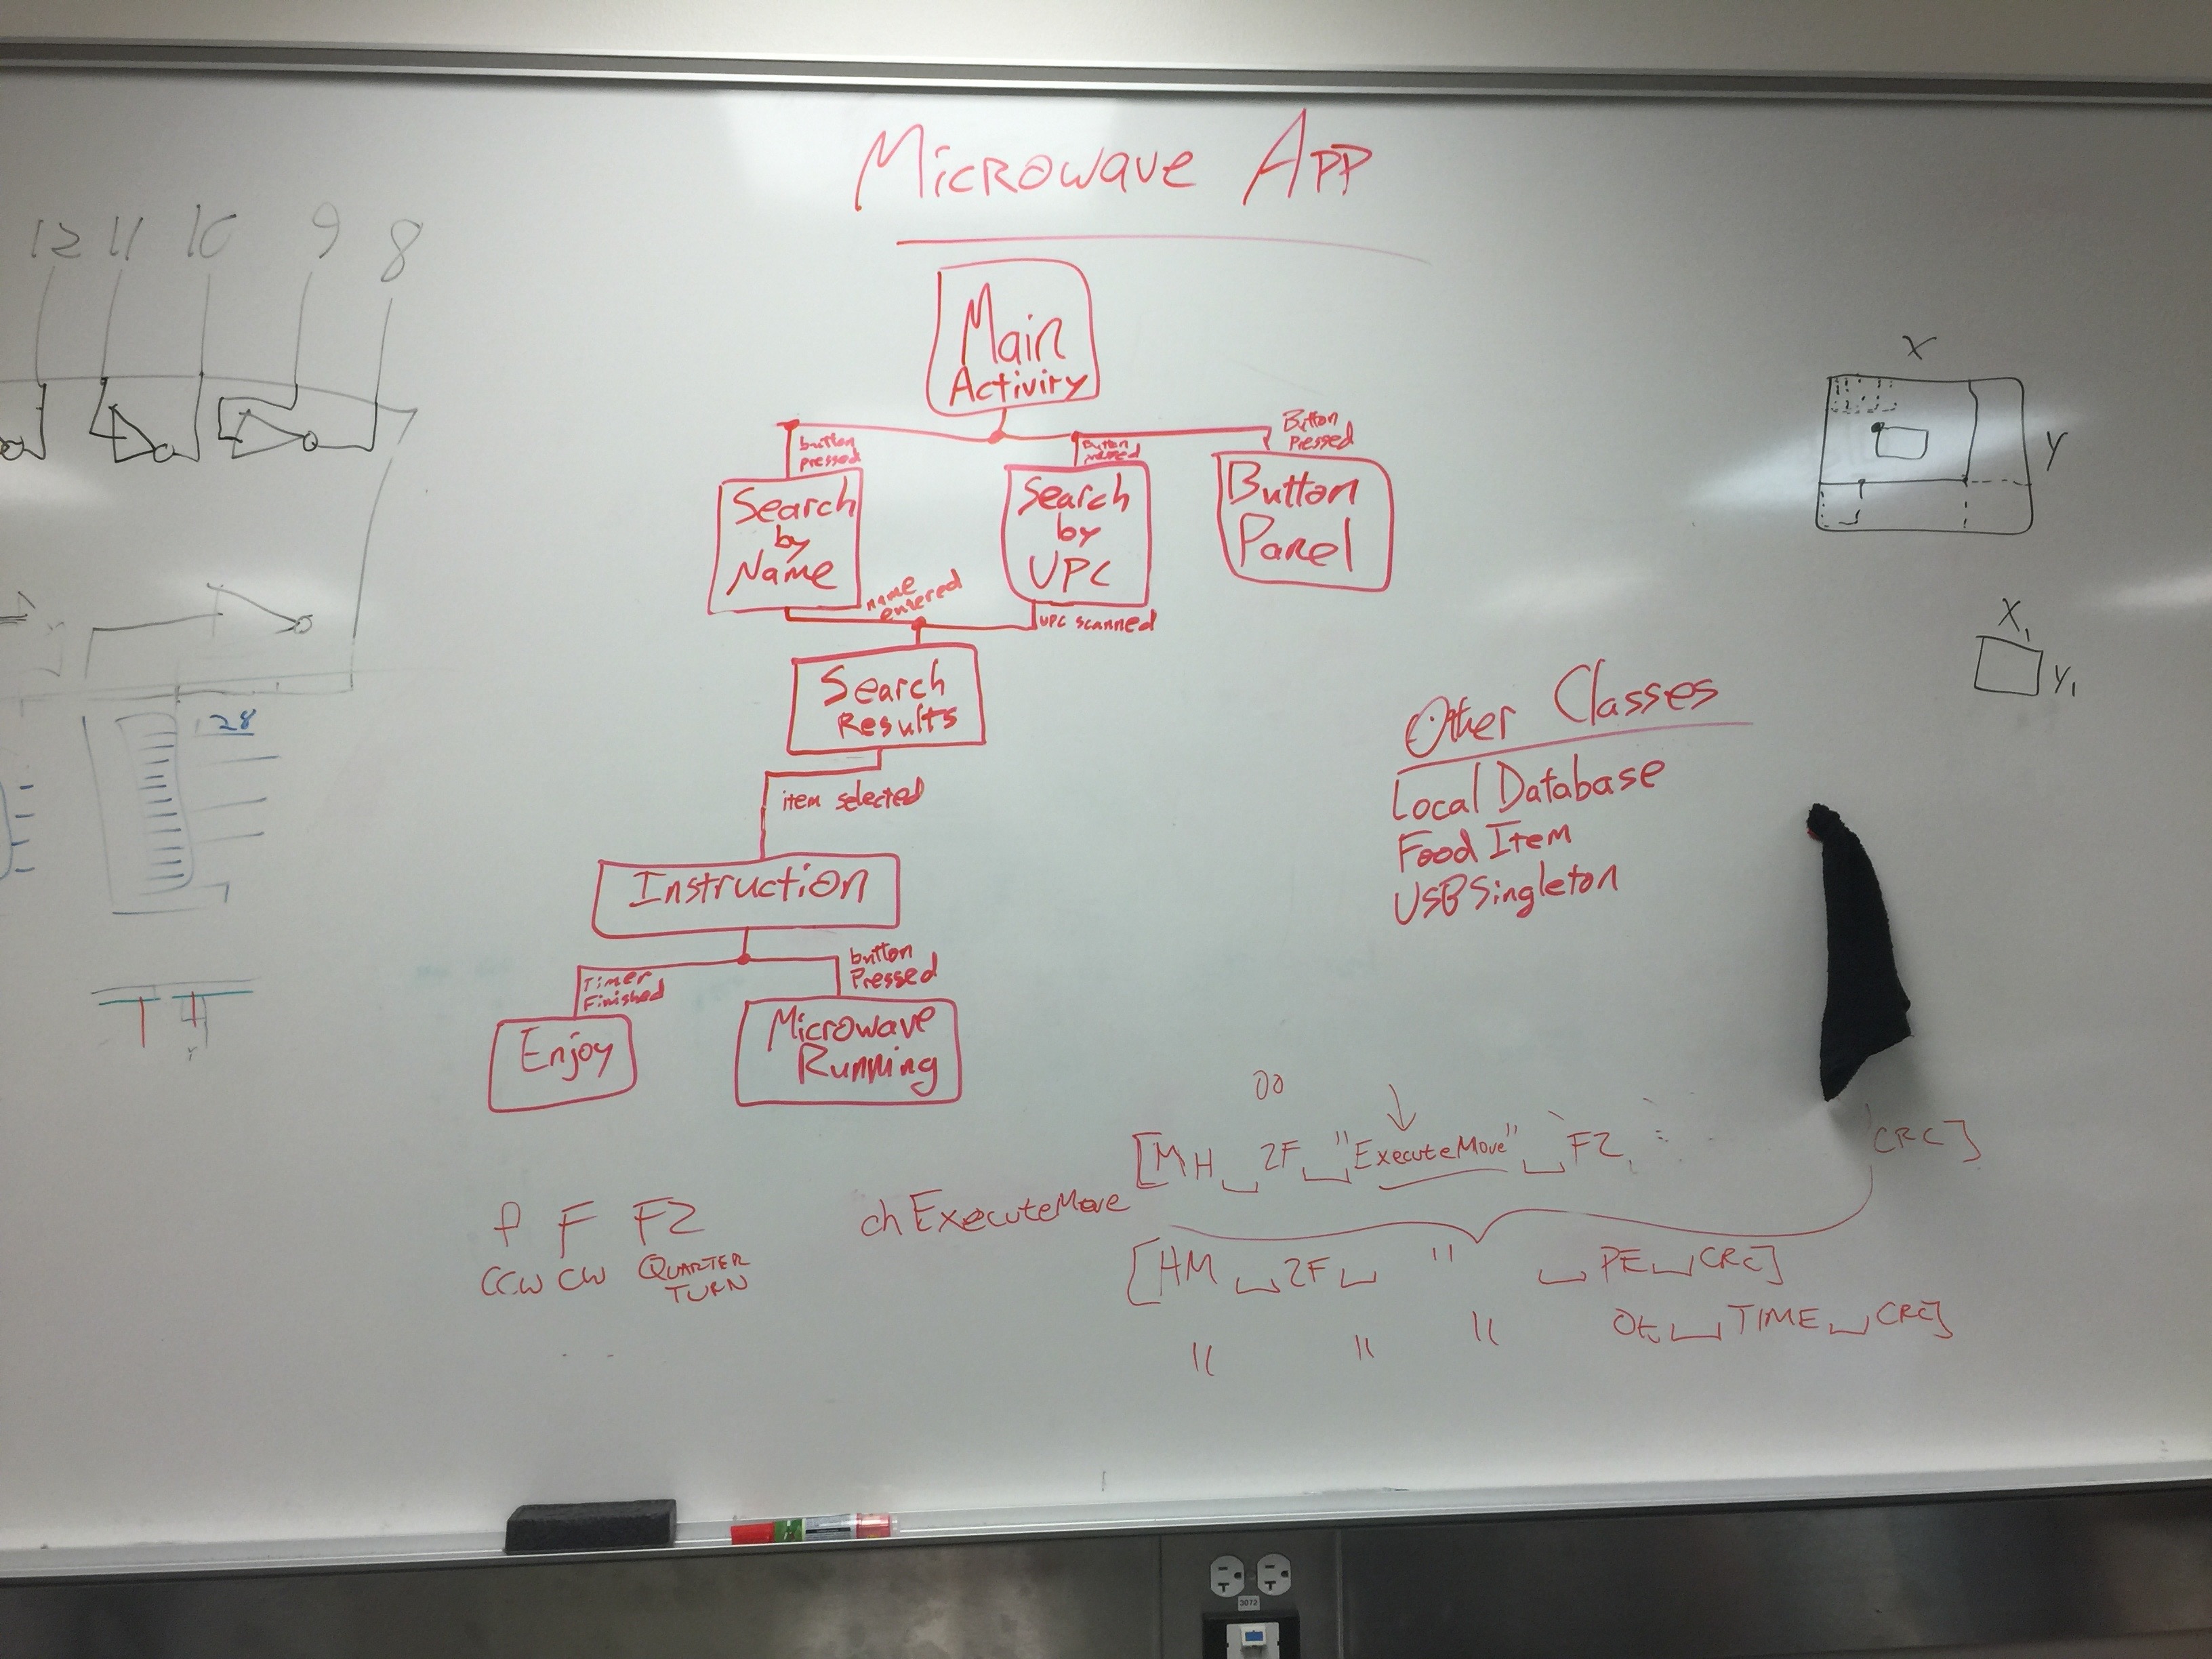 Microwave App
12 11 10 9 8
7
Main
Activity
button
pressed
Button
pressed
Button
Pressed
Search
by
Name
Search
by
UPC
Button
Panel
name
entered
UPC scanned
Search
Results
item selected
Instruction
Timer
Finished
button
Pressed
Enjoy
Microwave
Running
Other Classes
Local Database
Food Item
USBSingleton
X
Y
X1
Y1
28
00
[MH ␣ 2F ␣ "ExecuteMove" ␣ F2
CRC]
chExecuteMove
[HM ␣ 2F ␣ " ␣ PE ␣ CRC]
" " " OK ␣ TIME ␣ CRC]
f F F2
CCW CW QUARTER
TURN
3072